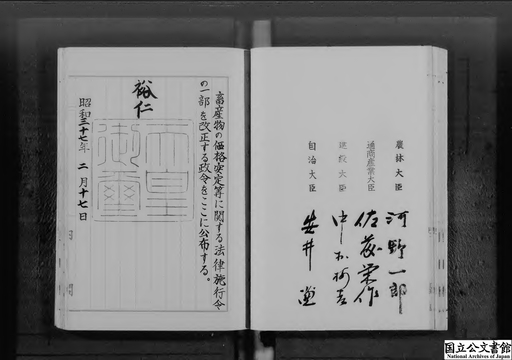 農林大臣 河野一郎
通商産業大臣 佐藤栄作
建設大臣 中村梅吉
自治大臣 安井謙
畜産物の価格安定等に関する法律施行令
の一部を改正する政令をここに公布する。
裕仁
天皇御璽
昭和三十七年 二月十七日
国立公文書館
National Archives of Japan